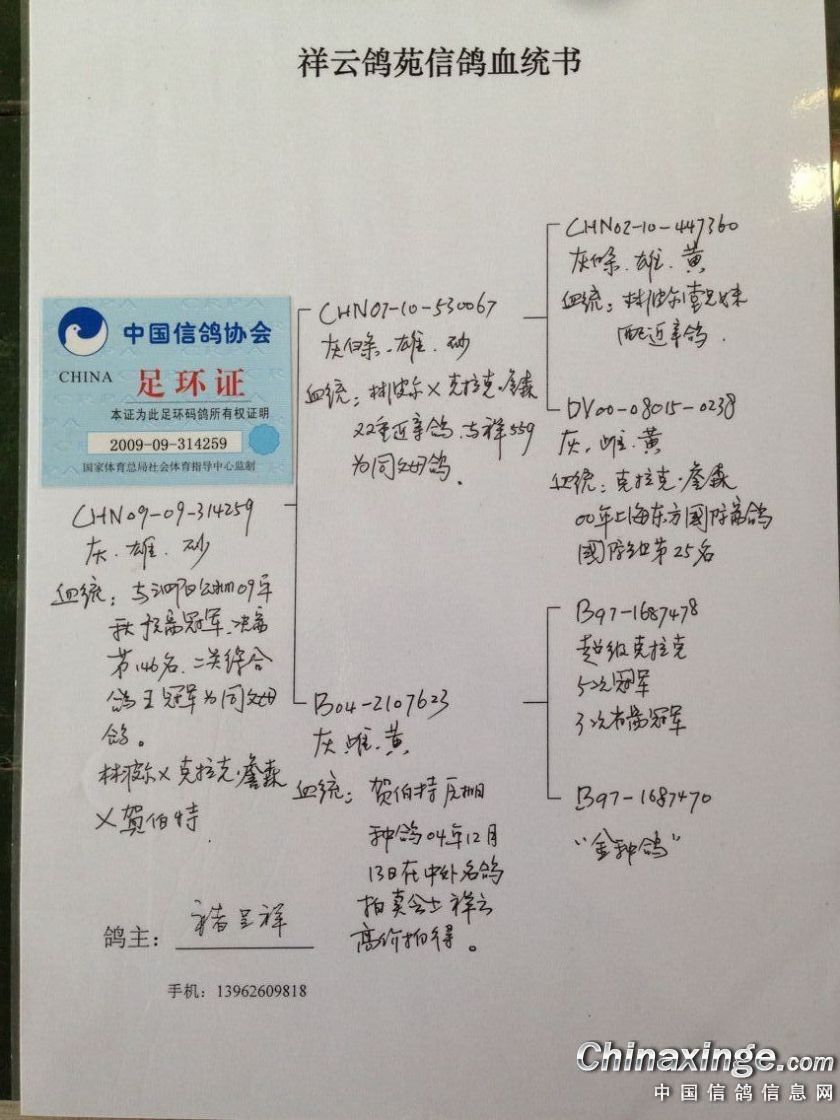 祥云鸽苑信鸽血统书
中国信鸽协会
CHINA 足环证
本证为此足环码鸽所有权证明
2009-09-314259
国家体育总局社会体育指导中心监制
CHN09-09-314259
灰.雄.砂
血统：与泗阳公棚09年
秋预赛冠军、决赛
第146名、二关综合
鸽王冠军为同父母
鸽。
林波尔X克拉克·詹森
X贺伯特
CHN07-10-530067
灰白条.雄.砂
血统：林波尔X克拉克·詹森
双重近亲鸽.与祥559
为同父母鸽.
B04-2107623
灰.雌.黄
血统：贺伯特原棚
种鸽04年12月
13日在中外名鸽
拍卖会上祥云
高价拍得。
CHN02-10-447360
灰白条.雄.黄
血统：林波尔
配近亲鸽.
DV00-08015-0238
灰.雌.黄
血统：克拉克·詹森
00年上海东方国际赛鸽
国际组第25名
B97-1687478
超级克拉克
5次冠军
3次省赛冠军
B97-1687470
"金种鸽"
鸽主：褚呈祥
手机：13962609818
Chinaxinge.com
中国信鸽信息网